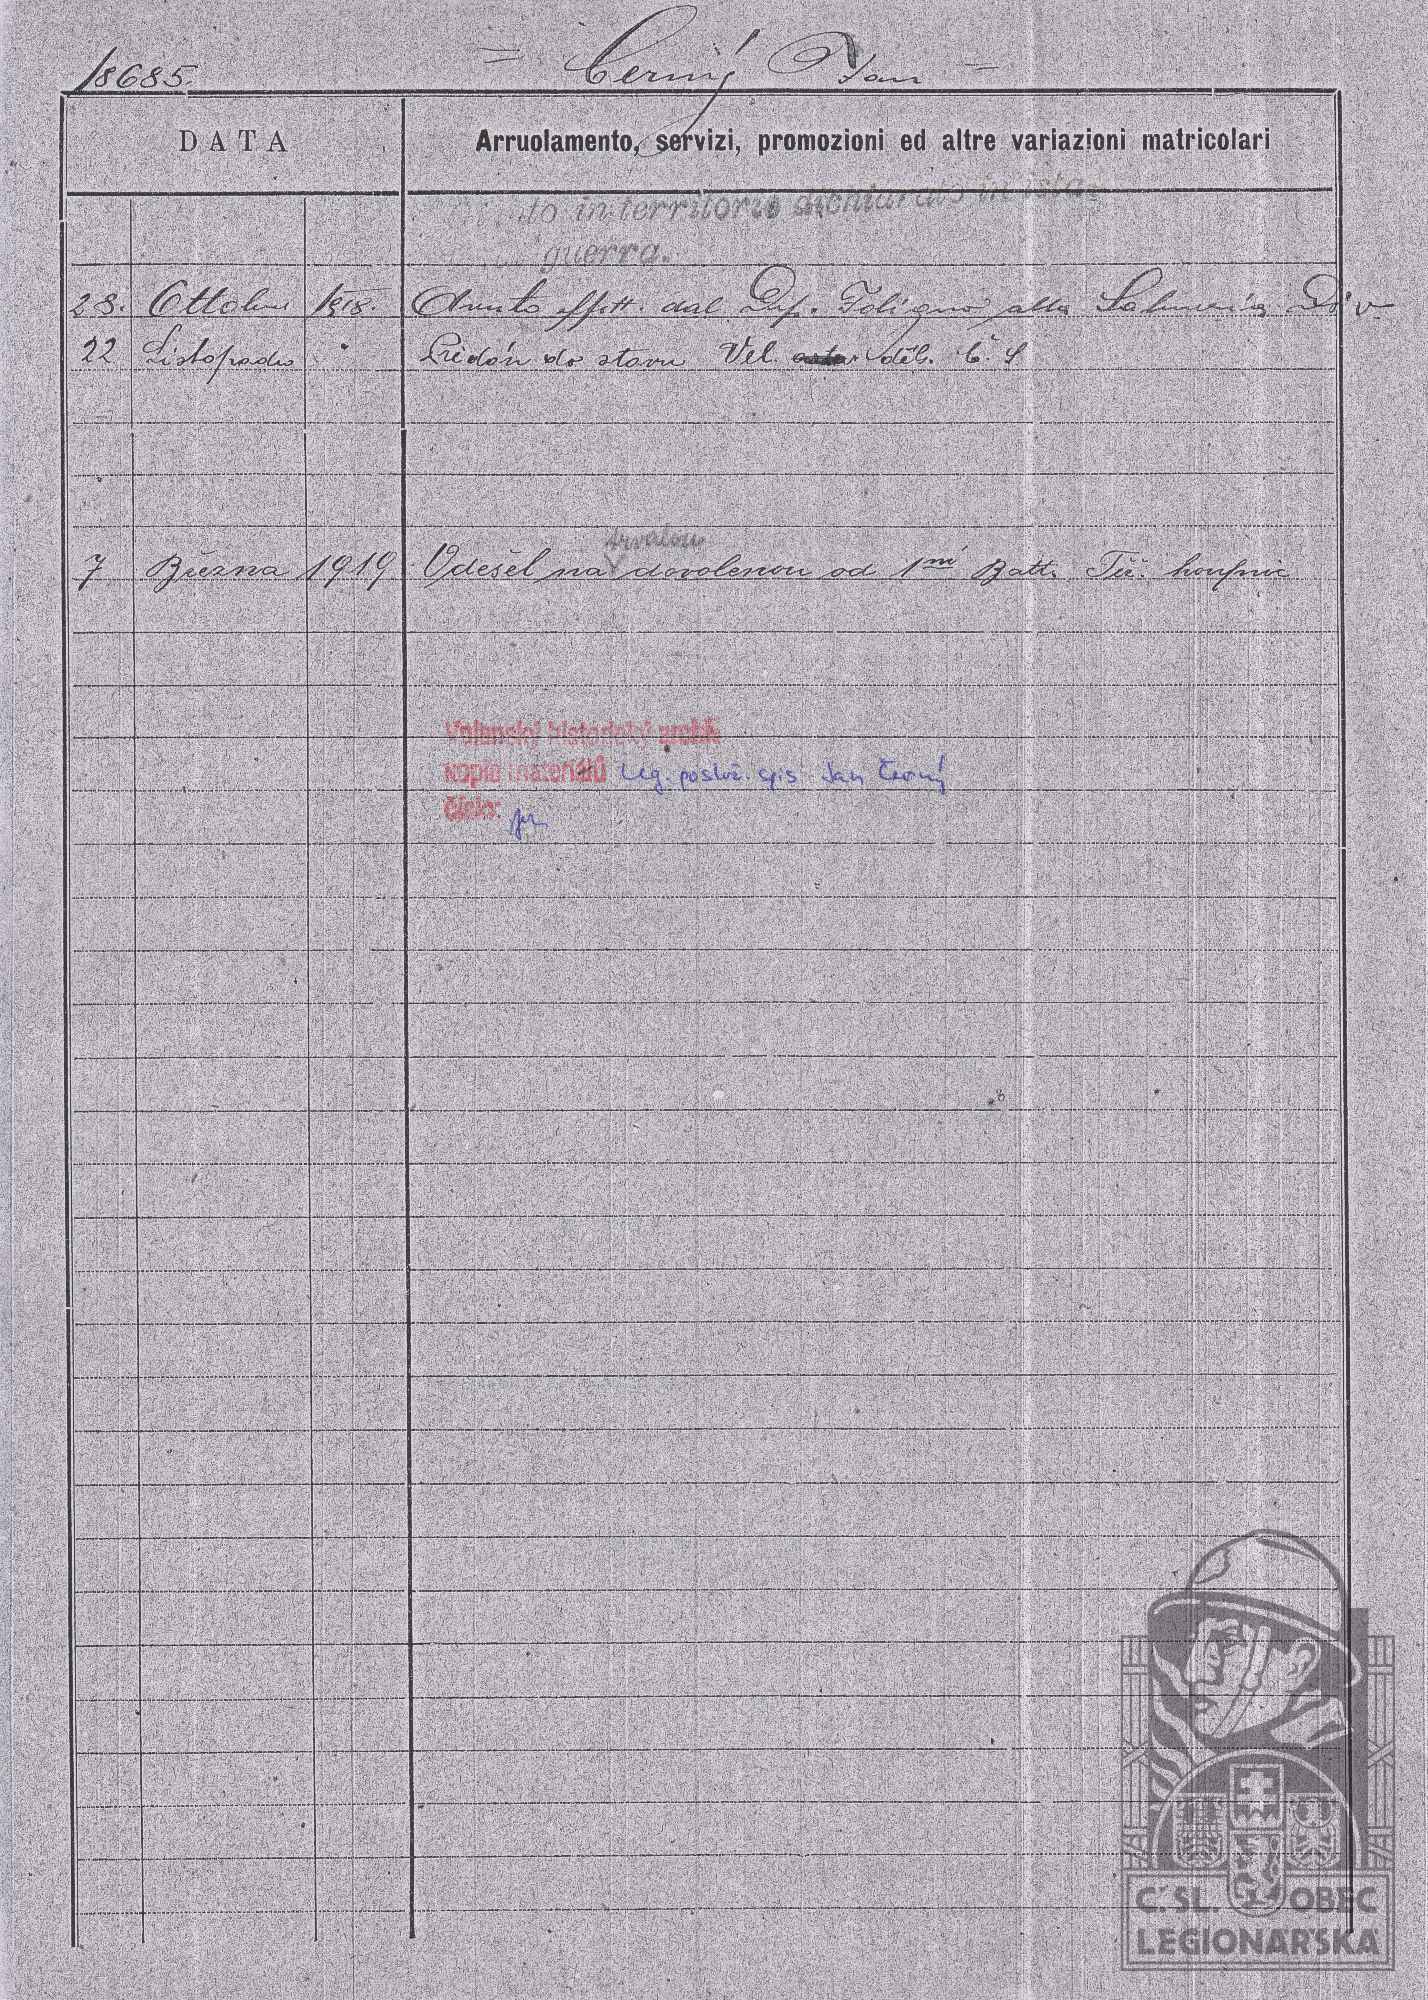 18685.
= Černý Jan =
DATA
Arruolamento, servizi, promozioni ed altre variazioni matricolari
in territorio dichiarato in ista-
guerra.
23. Ottobre 1918. Giunto effett. dal Dep. Foligno alla Salmeria Div.
22 Listopadu " Přidán do stavu Vel. děl. Č. S
trvalou
7 Března 1919 Odešel na dovolenou od 1ní Batt. Těž. houfnic
Vojenský historický archiv
kopie materiálů leg. posluž. spis Jan Černý
číslo:
Č.SL. OBEC
LEGIONÁŘSKÁ